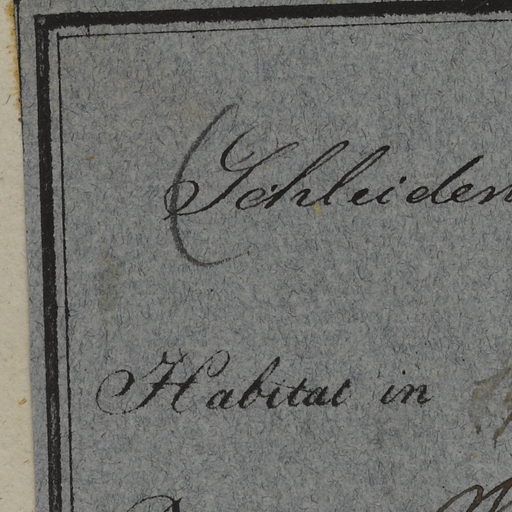 (Schleiden
Habitat in